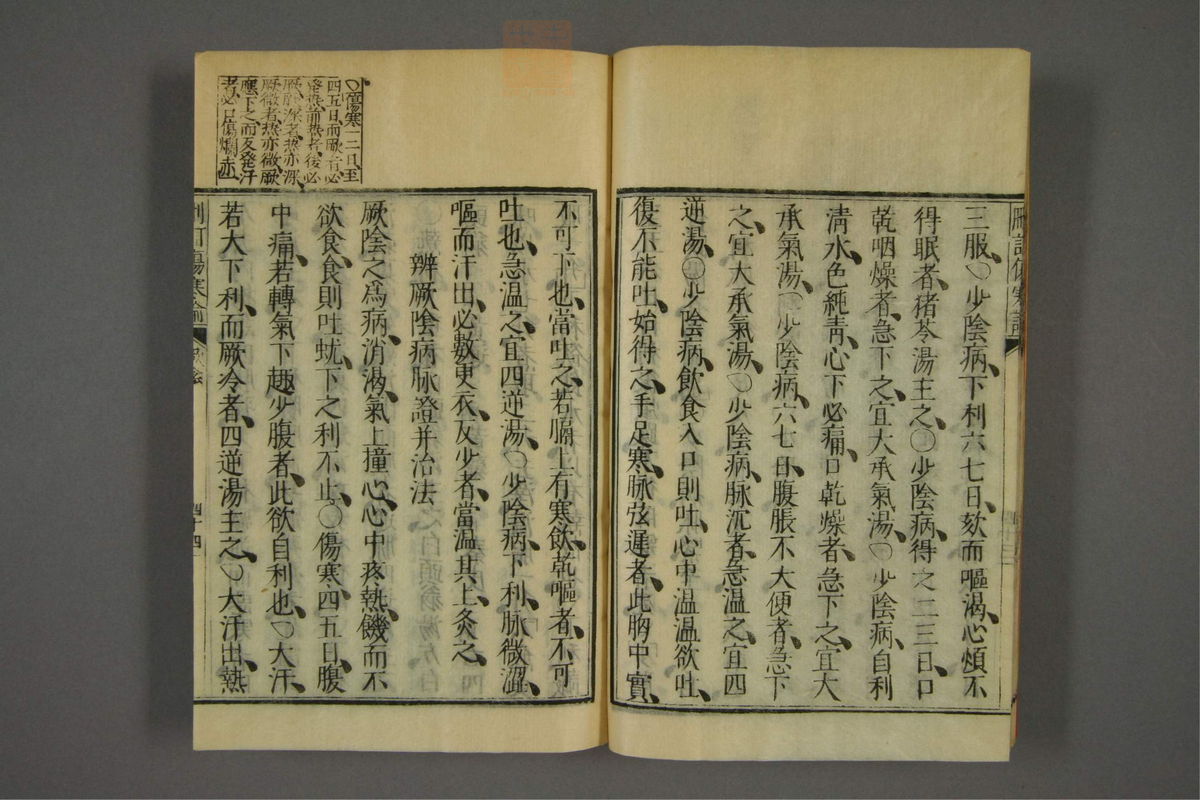 三服、〇少陰病、下利六七日、欬而嘔渴、心煩不
得眠者、猪苓湯主之、〇少陰病、得之二三日、口
乾咽燥者、急下之、宜大承氣湯、〇少陰病、自利
淸水、色純靑、心下必痛、口乾燥者、急下之、宜大
承氣湯、〇少陰病、六七日、腹脹不大便者、急下
之、宜大承氣湯、〇少陰病、脉沉者、急温之、宜四
逆湯、〇少陰病、飮食入口則吐、心中温温欲吐、
復不能吐、始得之、手足寒、脉弦遲者、此胸中實、
不可下也、當吐之、若膈上有寒飮、乾嘔者、不可
吐也、急温之、宜四逆湯、〇少陰病、下利、脉微澀、
嘔而汗出、必數更衣、反少者、當温其上、灸之、
辨厥陰病脉證并治法
厥陰之爲病、消渴、氣上撞心、心中疼熱、饑而不
欲食、食則吐蚘、下之利不止、〇傷寒、四五日、腹
中痛、若轉氣下趨少腹者、此欲自利也、〇大汗、
若大下利、而厥冷者、四逆湯主之、〇大汗出、熱
〇傷寒一二日、至
四五日、而厥者、必
發熱、前熱者、後必
厥、厥深者、熱亦深、
厥微者、熱亦微、厥
應下之、而反發汗
者、必口傷爛赤、
四十四